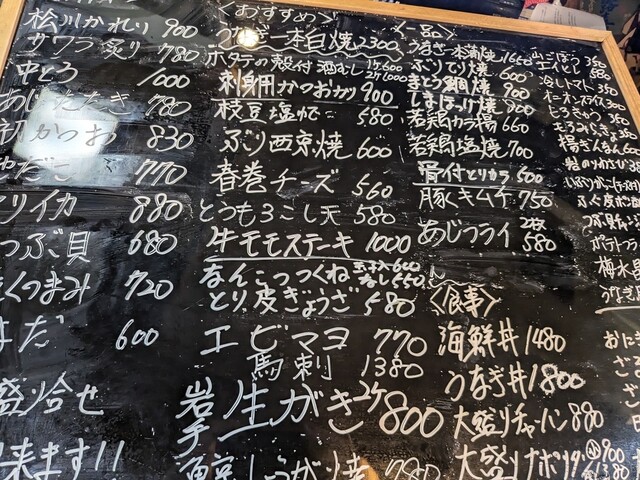 松川かれい 900
サワラ炙り 780
中とろ 1000
あじたたき 780
かつお 830
だこ 770
リイカ 880
つぶ貝 680
くつまみ 720
だ 600
盛り合せ
来ます!!
<おすすめ>
うなぎ一本白焼 2300
ホタテの殻付 酒むし
刺身用かつおかり 900
枝豆塩ゆで 580
ぶり西京焼 600
春巻チーズ 560
とうも3こし天 580
牛モモステーキ 1000
なんこつつくね
とり皮ぎょうざ 580
エビマヨ 770
馬刺 1380
岩手 生がき 2ケ 800
しょうが焼 780
<一品>
うなぎ一本蒲焼 1660
ぶりてり焼 600
まとう鯛焼 900
しまほっけ焼 900
若鶏カラ揚 660
若鶏塩焼 700
骨付とりカラ 600
豚くキムチ 750
あじフライ 2枚 580
<食事>
海鮮丼 1480
うなぎ丼 1800
大盛りチャーハン 880
大盛りナポリタ
ごぼう 350
エイヒレ 580
冷しトマト 350
オニオンスライス 300
もろきゅう 350
揚ぎんなん
ふぐ皮ポン酢
ポテトフ
梅水晶
うなぎ
おにぎ